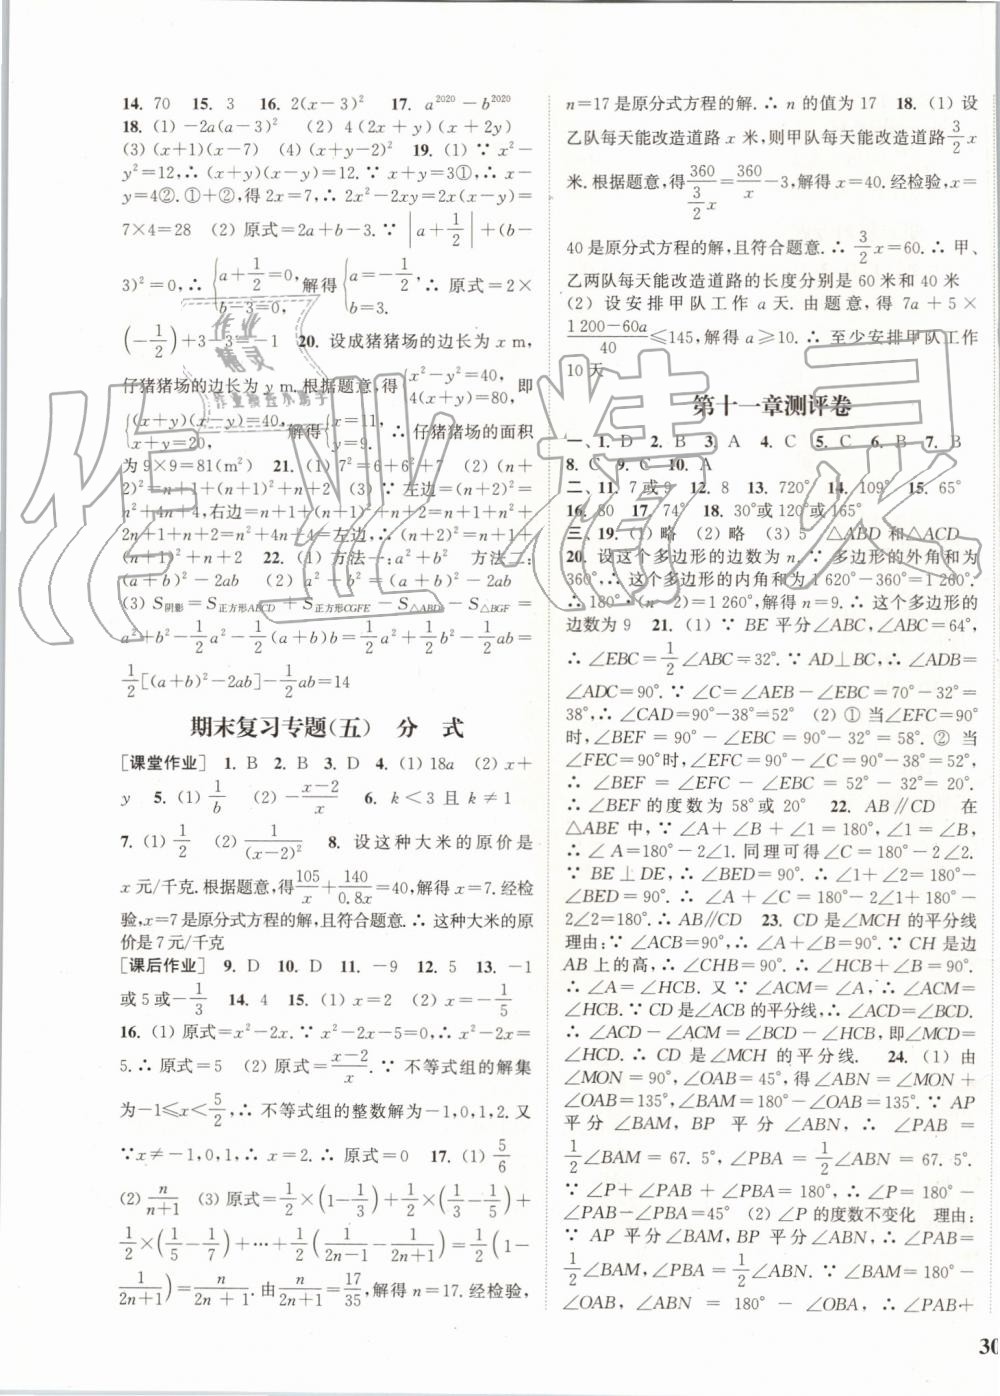 14. 70 15. 3 16. 2(x-3)² 17. a²⁰²⁰-b²⁰²⁰
18. (1) -2a(a-3)² (2) 4(2x+y)(x+2y)
(3) (x+1)(x-7) (4) (x+y-2)² 19. (1) ∵ x²-
y²=12,∴ (x+y)(x-y)=12.∵ x+y=3①,∴ x-
y=4②. ①+②,得 2x=7,∴ 2x²-2xy=2x(x-y)=
7×4=28 (2) 原式=2a+b-3.∵ |a+1/2|+(b-
3)²=0,∴ {a+1/2=0, b-3=0, 解得 {a=-1/2, b=3. ∴ 原式=2×
(-1/2)+3-3=-1 20. 设成猪猪场的边长为 x m,
仔猪猪场的边长为 y m.根据题意,得 {x²-y²=40, 4(x+y)=80, 即
{(x+y)(x-y)=40, x+y=20, 解得 {x=11, y=9. ∴ 仔猪猪场的面积
为 9×9=81(m²) 21. (1) 7²=6+6²+7 (2) (n+
2)²=n+1+(n+1)²+n+2 (3) ∵ 左边=(n+2)²=
n²+4n+4,右边=n+1+(n+1)²+n+2=n+1+n²+
2n+1+n+2=n²+4n+4=左边,∴ (n+2)²=n+1+
(n+1)²+n+2 22. (1) 方法一:a²+b² 方法二:
(a+b)²-2ab (2) a²+b²=(a+b)²-2ab
(3) S阴影=S正方形ABCD+S正方形CGFE-S△ABD-S△BGF=
a²+b²-1/2a²-1/2(a+b)b=1/2a²+1/2b²-1/2ab=
1/2[(a+b)²-2ab]-1/2ab=14
期末复习专题(五) 分 式
[课堂作业] 1. B 2. B 3. D 4. (1) 18a (2) x+
y 5. (1) 1/b (2) -(x-2)/x 6. k<3 且 k≠1
7. (1) 1/2 (2) 1/(x-2)² 8. 设这种大米的原价是
x 元/千克.根据题意,得 105/x+140/0.8x=40,解得 x=7.经检
验,x=7 是原分式方程的解,且符合题意.∴ 这种大米的原
价是 7 元/千克
[课后作业] 9. D 10. D 11. -9 12. 5 13. -1
或 5 或-1/3 14. 4 15. (1) x=2 (2) x=-1/5
16. (1) 原式=x²-2x.∵ x²-2x-5=0,∴ x²-2x=
5.∴ 原式=5 (2) 原式=(x-2)/x.∵ 不等式组的解集
为-1≤x<5/2,∴ 不等式组的整数解为-1,0,1,2.又
∵x≠-1,0,1,∴ x=2.∴ 原式=0 17. (1) 5/6
(2) n/(n+1) (3) 原式=1/2×(1-1/3)+1/2×(1/3-1/5)+
1/2×(1/5-1/7)+…+1/2(1/(2n-1)-1/(2n+1))=1/2(1-
1/(2n+1))=n/(2n+1).由n/(2n+1)=17/35,解得 n=17.经检验,
n=17 是原分式方程的解.∴ n 的值为 17 18. (1) 设
乙队每天能改造道路 x 米,则甲队每天能改造道路 3/2 x
米.根据题意,得 360/(3/2 x)=360/x-3,解得 x=40.经检验,x=
40 是原分式方程的解,且符合题意.∴ 3/2 x=60.∴ 甲、
乙两队每天能改造道路的长度分别是 60 米和 40 米
(2) 设安排甲队工作 a 天. 由题意, 得 7a+5×
(1 200-60a)/40≤145,解得 a≥10.∴ 至少安排甲队工作
10 天
第十一章测评卷
一、1. D 2. B 3. A 4. C 5. C 6. B 7. B
8. C 9. C 10. A
二、11. 7 或 9 12. 8 13. 720° 14. 109° 15. 65°
16. 80 17. 74° 18. 30°或 120°或 165°
三、19. (1) 略 (2) 略 (3) 5 △ABD 和△ACD
20. 设这个多边形的边数为 n.∵ 多边形的外角和为
360°,∴ 这个多边形的内角和为 1 620°-360°=1 260°.
∴ 180°·(n-2)=1 260°,解得 n=9.∴ 这个多边形的
边数为 9 21. (1) ∵ BE 平分∠ABC,∠ABC=64°,
∴ ∠EBC=1/2∠ABC=32°.∵ AD⊥BC,∴ ∠ADB=
∠ADC=90°.∵ ∠C=∠AEB-∠EBC=70°-32°=
38°,∴ ∠CAD=90°-38°=52° (2) ① 当∠EFC=90°
时,∠BEF = 90°-∠EBC = 90°-32°=58°. ② 当
∠FEC=90°时,∠EFC=90°-∠C=90°-38°=52°,
∴ ∠BEF = ∠EFC - ∠EBC = 52° - 32° = 20°.
∴ ∠BEF 的度数为 58°或 20° 22. AB∥CD 在
△ABE 中,∵ ∠A+∠B+∠1=180°,∠1=∠B,
∴ ∠A=180°-2∠1. 同理可得∠C=180°-2∠2.
∵ BE⊥DE,∴ ∠BED=90°.∴ ∠1+∠2=180°-
∠BED=90°. ∴ ∠A+∠C=180°-2∠1+180°-
2∠2=180°.∴ AB∥CD 23. CD 是∠MCH 的平分线
理由:∵ ∠ACB=90°,∴ ∠A+∠B=90°.∵ CH 是边
AB 上的高,∴ ∠CHB=90°.∴ ∠HCB+∠B=90°.
∴ ∠A=∠HCB. 又∵ ∠ACM=∠A,∴ ∠ACM=
∠HCB.∵ CD 是∠ACB 的平分线,∴ ∠ACD=∠BCD.
∴ ∠ACD-∠ACM=∠BCD-∠HCB,即∠MCD=
∠HCD.∴ CD 是∠MCH 的平分线. 24. (1) 由
∠MON = 90°, ∠OAB = 45°, 得∠ABN = ∠MON +
∠OAB=135°,∠BAM=180°-∠OAB=135°.∵ AP
平分 ∠BAM, BP 平分 ∠ABN, ∴ ∠PAB =
1/2∠BAM = 67. 5°, ∠PBA = 1/2∠ABN = 67. 5°.
∵ ∠P+∠PAB+∠PBA=180°,∴ ∠P=180°-
∠PAB-∠PBA=45° (2) ∠P 的度数不变化 理由:
∵ AP 平分∠BAM, BP 平分∠ABN, ∴ ∠PAB=
1/2∠BAM,∠PBA=1/2∠ABN.∵ ∠BAM=180°-
∠OAB, ∠ABN = 180° - ∠OBA, ∴ ∠PAB+
30
作业精灵
作业精灵